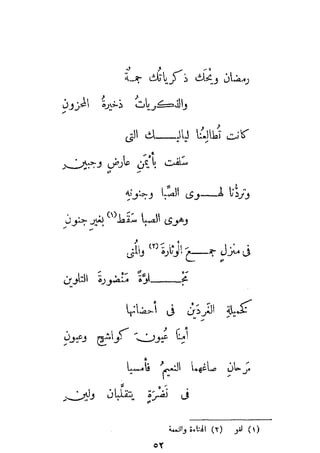 رمضان ويحك ذكرياتك جمة
والذكريات ذخيرة المحزون
كانت تطالعنا لياليك التى
سلفت بأيمن عارض وجبين
وتردنا لهوى الصبا وجنونه
وهوى الصبا سقط (١) بغير جنون
فى منزل جمع الوثارة (٢) والمنى
مجلوة منضورة التلوين
كخميلة الغردين فى أحضانها
أمنا عيون كواشح وعيون
مرحان صاغهما النعيم فأمسيا
فى نضرة يتقلبان ولين
(١) لغو (٢) الهناءة والنعمة
٥٢